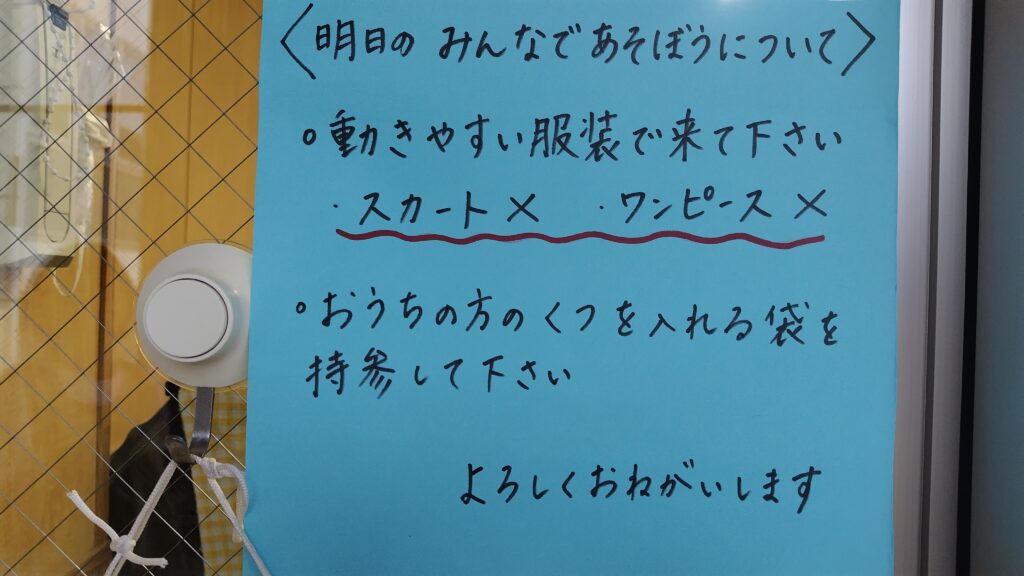 〈明日の みんなであそぼうについて〉
○動きやすい服装で来て下さい
・スカート× ・ワンピース×
○おうちの方のくつを入れる袋を
持参して下さい
よろしくおねがいします